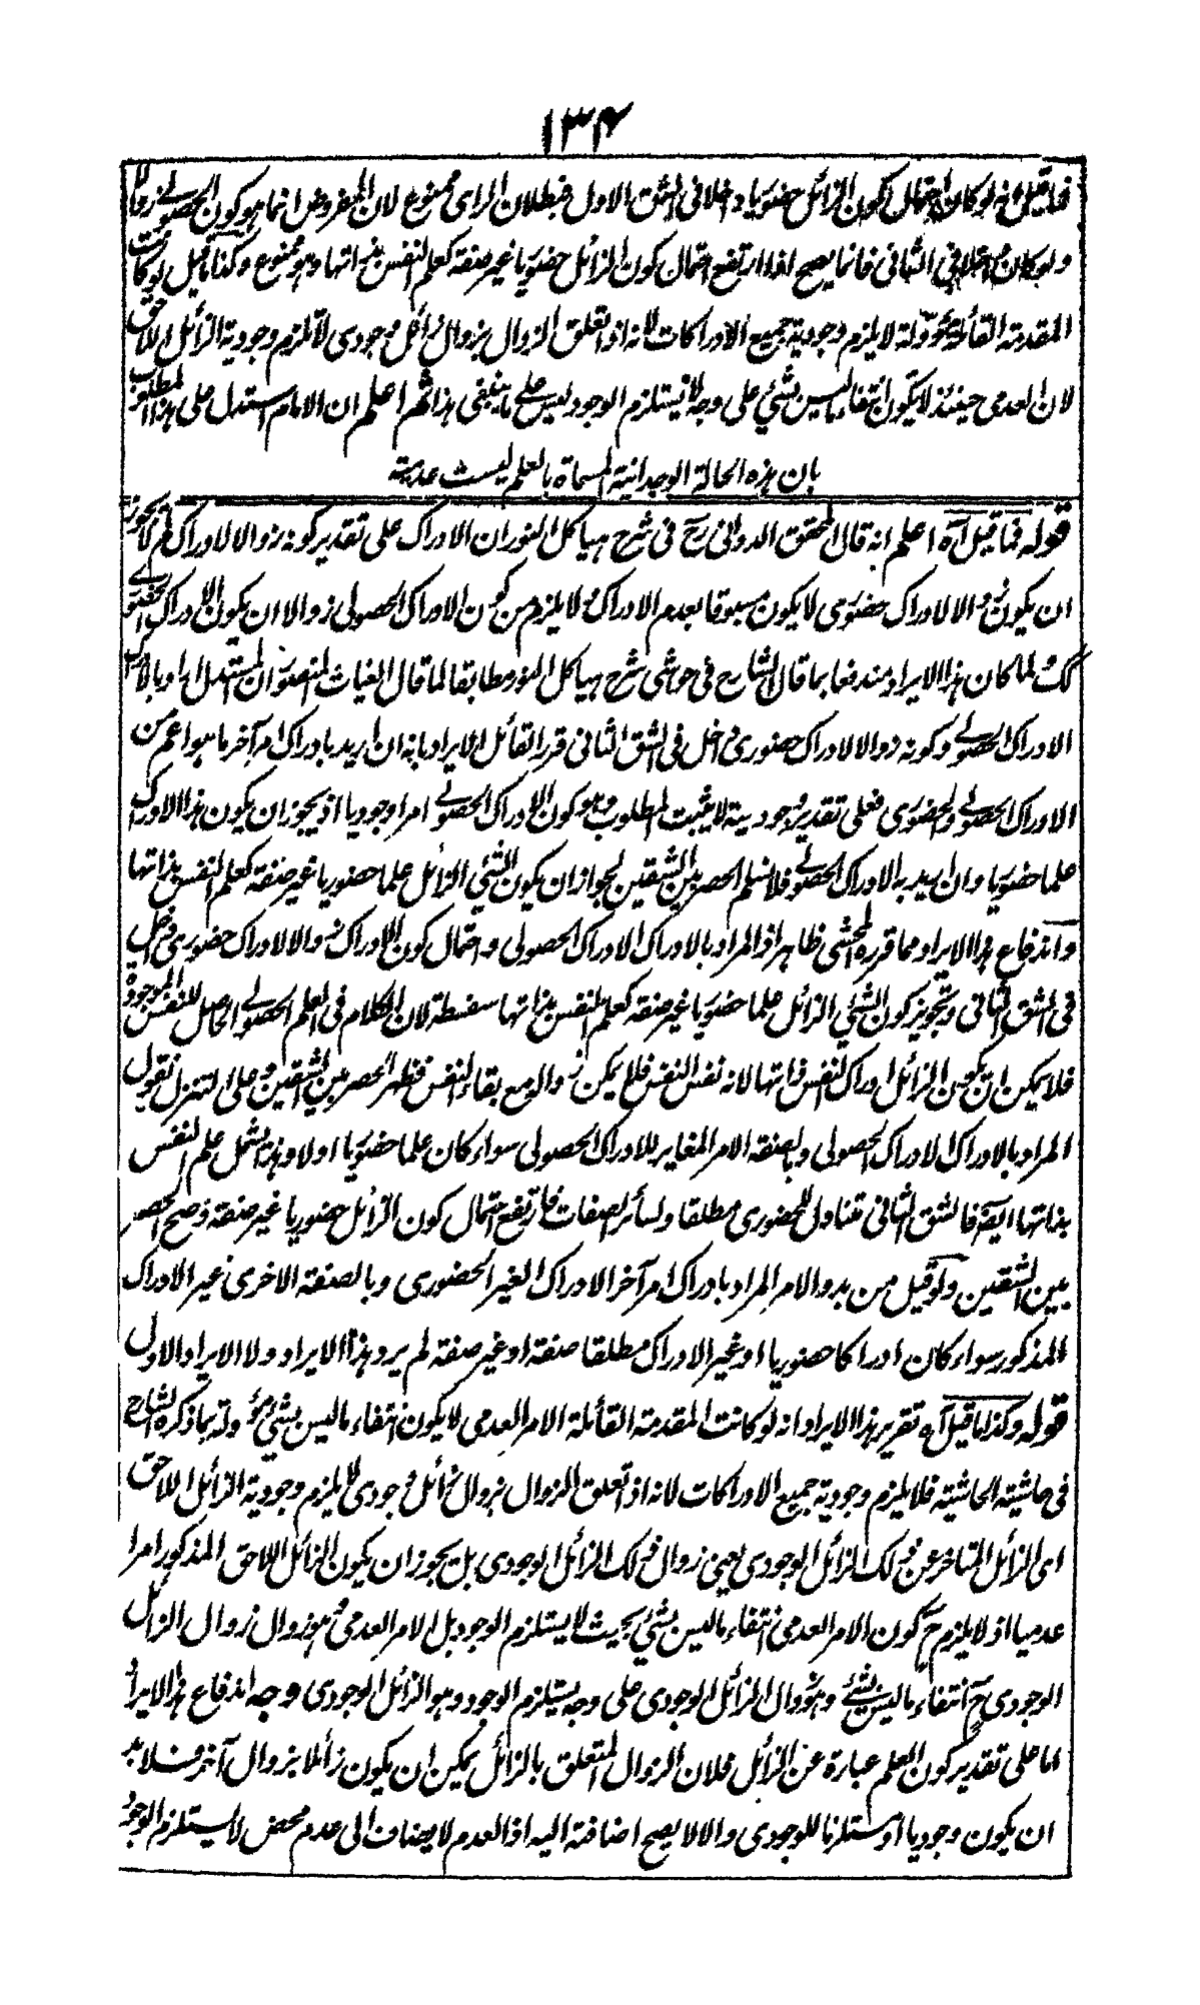 ۱۳۴
فما قيل انه لو كان احتمال كون الزائل حضوريا داخلا فى الشق الاول فبطلان الراى ممنوع لان المفروض انما هو كون الحصولى زوالا
ولو كان داخلا فى الثانى فانما يصح اذا ارتفع احتمال كون الزائل حضوريا غير صفة كعلم النفس بذاتها وهو ممنوع وكذا ما قيل لو كانت
المقدمة القائلة مؤولة لا يلزم وجودية جميع الادراكات لانه اذا تعلق الزوال بزوال زائل وجودى لا يلزم وجودية الزائل اللاحق
لان العدمى حينئذ لا يكون انتفاء ما ليس بشئ على وجه لا يستلزم الوجود ليس على ما ينبغى هذا ثم اعلم ان الامام استدل على هذا المطلوب
بان هذه الحالة الوجدانية المسماة بالعلم ليست عدمية
قوله فما قيل آه اعلم انه قال المحقق الدوانى رح فى شرح هياكل النور ان الادراك على تقدير كونه زوالا لادراك لم لا يجوز
ان يكون زوالا لادراك حضورى لا يكون مسبوقا بعدم الادراك ولا يلزم من كون الادراك الحصولى زوالا ان يكون الادراك الحضورى
كك ولما كان هذا الايراد مندفعا بما قال الشارح فى حواشى شرح هياكل النور مطابقا لما قال الغياث المنصور ان المستدل اراد بالادراك
الادراك الحصولى وكونه زوالا لادراك حضورى داخل فى الشق الثانى قرر القائل الايراد بانه ان اريد بادراك امر آخر ما هو اعم من
الادراك الحصولى والحضورى فعلى تقدير وجوديته لا يثبت المطلوب وهو كون الادراك الحصولى امرا وجوديا اذ يجوز ان يكون هذا الادراك
علما حضوريا وان اريد به الادراك الحصولى فلا نسلم الحصر بين الشقين لجواز ان يكون الشئ الزائل علما حضوريا غير صفة كعلم النفس بذاتها
واندفاع هذا الايراد مما قرره المحشى ظاهر اذ المراد بالادراك الادراك الحصولى واحتمال كون الادراك زوالا لادراك حضورى داخل
فى الشق الثانى وتجويز كون الشئ الزائل علما حضوريا غير صفة كعلم النفس بذاتها سفسطة لان الكلام فى العلم الحصولى الحاصل للنفس الموجودة
فلا يمكن ان يكون الزائل ادراك النفس ذاتها لانه نفس النفس فلا يمكن زواله مع بقاء النفس فظهر الحصر بين الشقين وعلى التنزل نقول
المراد بالادراك الادراك الحصولى وبالصفة الامر المغاير للادراك الحصولى سواء كان علما حضوريا اولا وهذا يشمل علم النفس
بذاتها ايضا فالشق الثانى متناول للحضورى مطلقا ولسائر الصفات فارتفع احتمال كون الزائل حضوريا غير صفة وصح الحصر
بين الشقين ولو قيل من بدو الامر المراد بادراك امر آخر الادراك الغير الحضورى وبالصفة الاخرى غير الادراك
المذكور سواء كان ادراكا حضوريا او غير الادراك مطلقا صفة او غير صفة لم يرد هذا الايراد ولا الايراد الاول
قوله وكذا ما قيل آه تقرير هذا الايراد انه لو كانت المقدمة القائلة الامر العدمى لا يكون انتفاء ما ليس بشئ مؤولة بما ذكره الشارح
فى حاشية الحاشية فلا يلزم وجودية جميع الادراكات لانه اذا تعلق الزوال بزوال زائل وجودى لا يلزم وجودية الزائل اللاحق
اى الزائل المتاخر عن ذلك الزائل الوجودى يعنى زوال ذلك الزائل الوجودى بل يجوز ان يكون الزائل اللاحق المذكور امرا
عدميا اذ لا يلزم ح كون الامر العدمى انتفاء ما ليس بشئ بحيث لا يستلزم الوجود بل الامر العدمى وهو زوال زوال الزائل
الوجودى ح انتفاء ما ليس بشئ وهو زوال الزائل الوجودى على وجه يستلزم الوجود وهو الزائل الوجودى وجه اندفاع هذا الايراد
اما على تقدير كون العلم عبارة عن الزائل فلان الزوال المتعلق بالزائل يمكن ان يكون زائلا بزوال آخر فلا بد
ان يكون وجوديا او مستلزما للوجودى والا لا يصح اضافته اليه اذ العدم لا يضاف الى عدم محض لا يستلزم الوجود